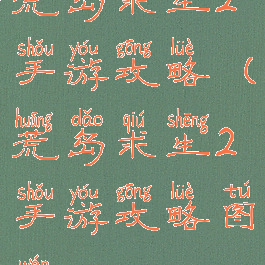 荒岛求生2
shǒu yóu gōng lüè
手游攻略（
huāng dǎo qiú shēng
荒岛求生2
shǒu yóu gōng lüè tú
手游攻略图